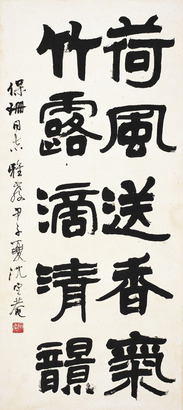 荷風送香氣
竹露滴清韻
保珊同志雅 甲子夏沈定菴